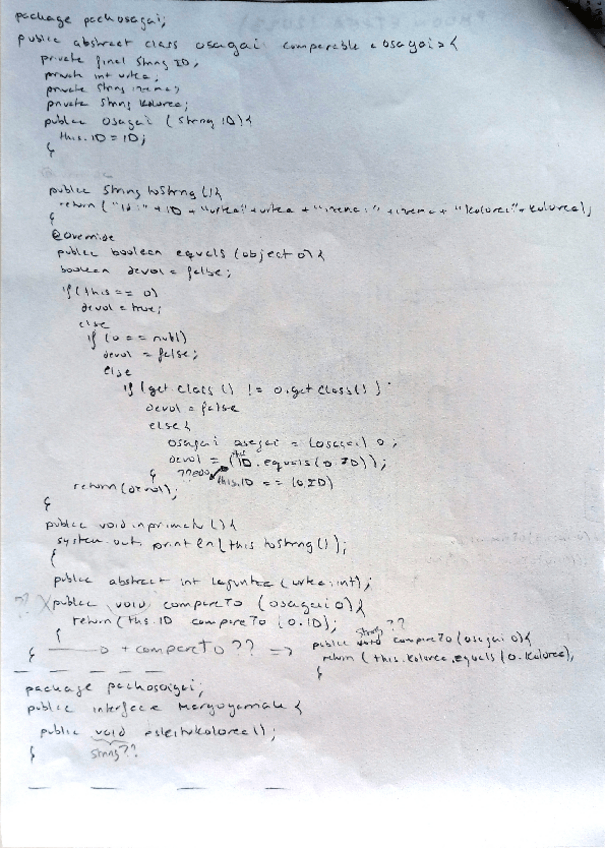 package packosagai;
public abstract class osagai comparable <osagai>{
private final String ID;
private int urtea;
private String izena;
private String Kolorea;
public Osagai (String ID){
this.ID = ID;
}
public String toString (){
return ("Id:" + ID + "urtea:" + urtea + "izena:" + izena + "Kolorea:" + Kolorea);
}
@override
public boolean equals (object o){
boolean devol = false;
if (this == o)
devol = true;
else
if (o == null)
devol = false;
else
if (get class () != o.get class())
devol = false
else {
osagai osagai = (osagai) o;
devol = (ID.equals (o.ID));
}
this.ID == (o.ID)
return (devol);
}
public void inprimatu (){
system.out. println (this toString ());
}
public abstract int laguntza (urtea: int);
?? X public void compareTo (osagai o){
return (this.ID compareTo (o.ID);
}
} o + compareTo ?? =>
String ??
public void compareTo (osagai o){
return (this.Kolorea.equals (o.Kolorea);
}
package packosaigai;
public interface Margogarriak {
public void esleituKolorea();
} String??